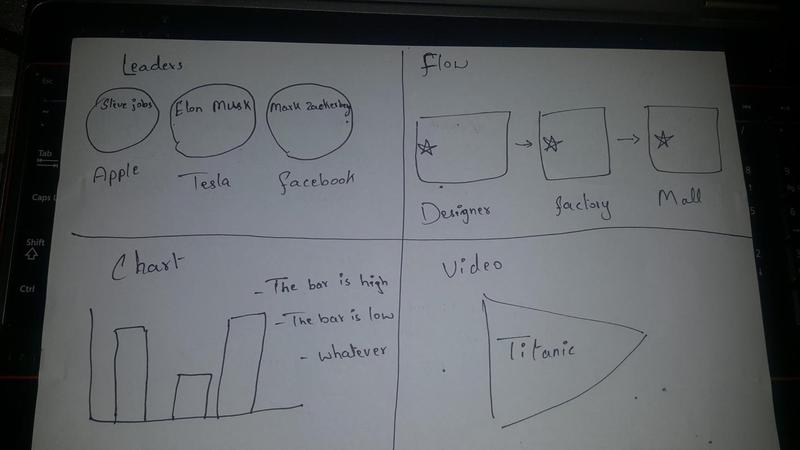 Leaders
Steve jobs
Elon Musk
Mark Zuckerberg
Apple
Tesla
facebook
flow
Designer
factory
Mall
Chart
- The bar is high
- The bar is low
- whatever
Video
Titanic
Esc
Tab
Caps
Shift
Ctrl